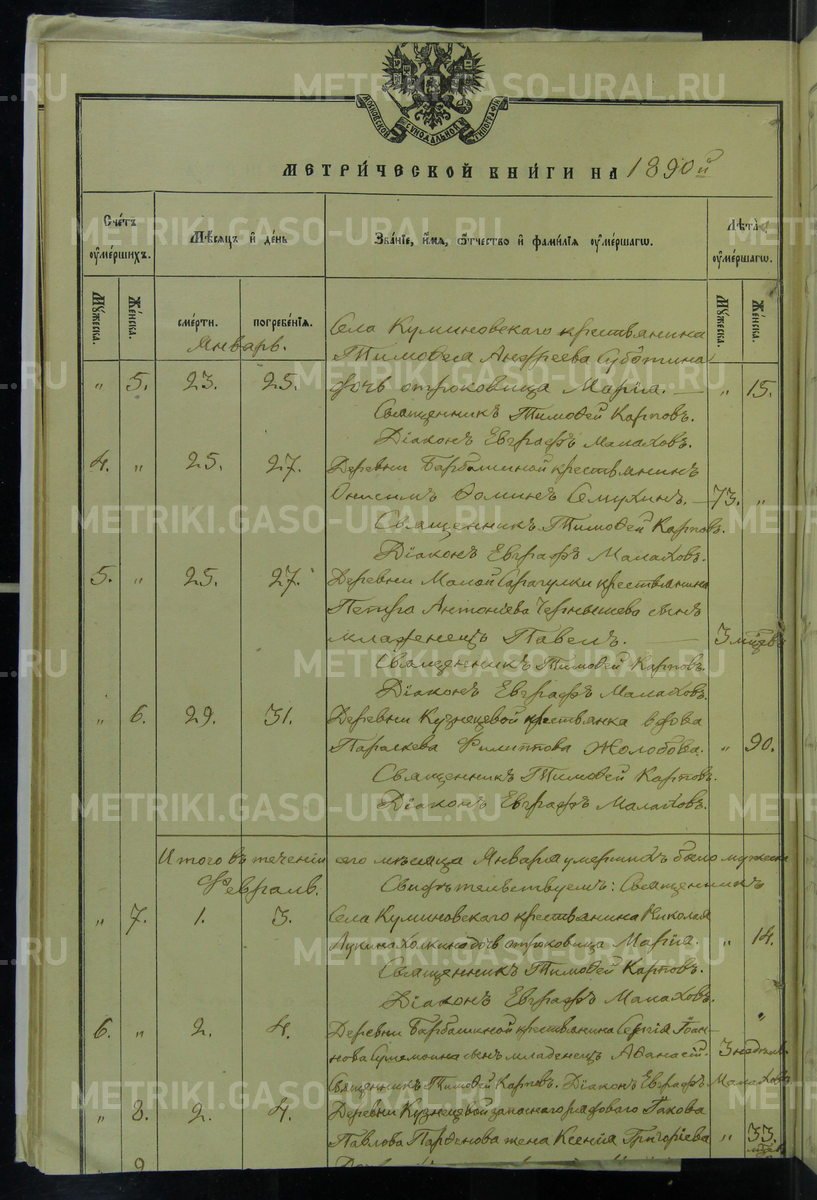 МОСКОВСКОЙ СѴНОДАЛЬНОЙ ТИПОГРАФІИ
МЕТРИ́ЧЕСКОЙ КНИ́ГИ НА 1890й
Счетъ ᲂумершихъ.
Мѣсяцъ и день
Званіе, имя, ѻтчество и фамилія ᲂумершагѡ.
Лѣта ᲂумершагѡ.
Мꙋжеска.
Женска.
смерти.
погребенія.
Мꙋжеска.
Женска.
Январь.
Села Куминовскаго крестьянина
Тимоѳея Андреева Субботина
„ 5. 23. 25. дочь отроковица Марія. — „ 15.
Священникъ Тимоѳей Карповъ.
Діаконъ Евграфъ Малаховъ.
4. „ 25. 27. Деревни Барбашиной крестьянинъ
Онисимъ Ѳоминъ Семухинъ. — 73. „
Священникъ Тимоѳей Карповъ.
Діаконъ Евграфъ Малаховъ.
5. „ 25. 27. Деревни Малой Сарагулки крестьянина
Петра Антоніева Чернышева сынъ
младенецъ Павелъ. — 3 мѣсяцъ
Священникъ Тимоѳей Карповъ.
Діаконъ Евграфъ Малаховъ.
„ 6. 29. 31. Деревни Кузнецевой крестьянка вдова
Параскева Филиппова Жолобова. „ 90.
Священникъ Тимоѳей Карповъ.
Діаконъ Евграфъ Малаховъ.
Итого въ теченіи сего мѣсяца Января умершихъ было мужеска
Февраль. Свидѣтельствуемъ: Священникъ
„ 7. 1. 3. Села Куминовскаго крестьянина Николая
Лукина дочь отроковица Марія. „ 14.
Священникъ Тимоѳей Карповъ.
Діаконъ Евграфъ Малаховъ.
6. „ 2. 4. Деревни Барбашиной крестьянина Сергія Іоан- „
нова сынъ младенецъ Аѳанасій. 3 недѣль
Священникъ Тимоѳей Карповъ. Діаконъ Евграфъ Малаховъ
„ 8. 2. 4. Деревни Кузнецевой запаснаго рядоваго Іакова
Павлова Парѳенова жена Ксенія Григоріева „ 33.
9
METRIKI.GASO-URAL.RU